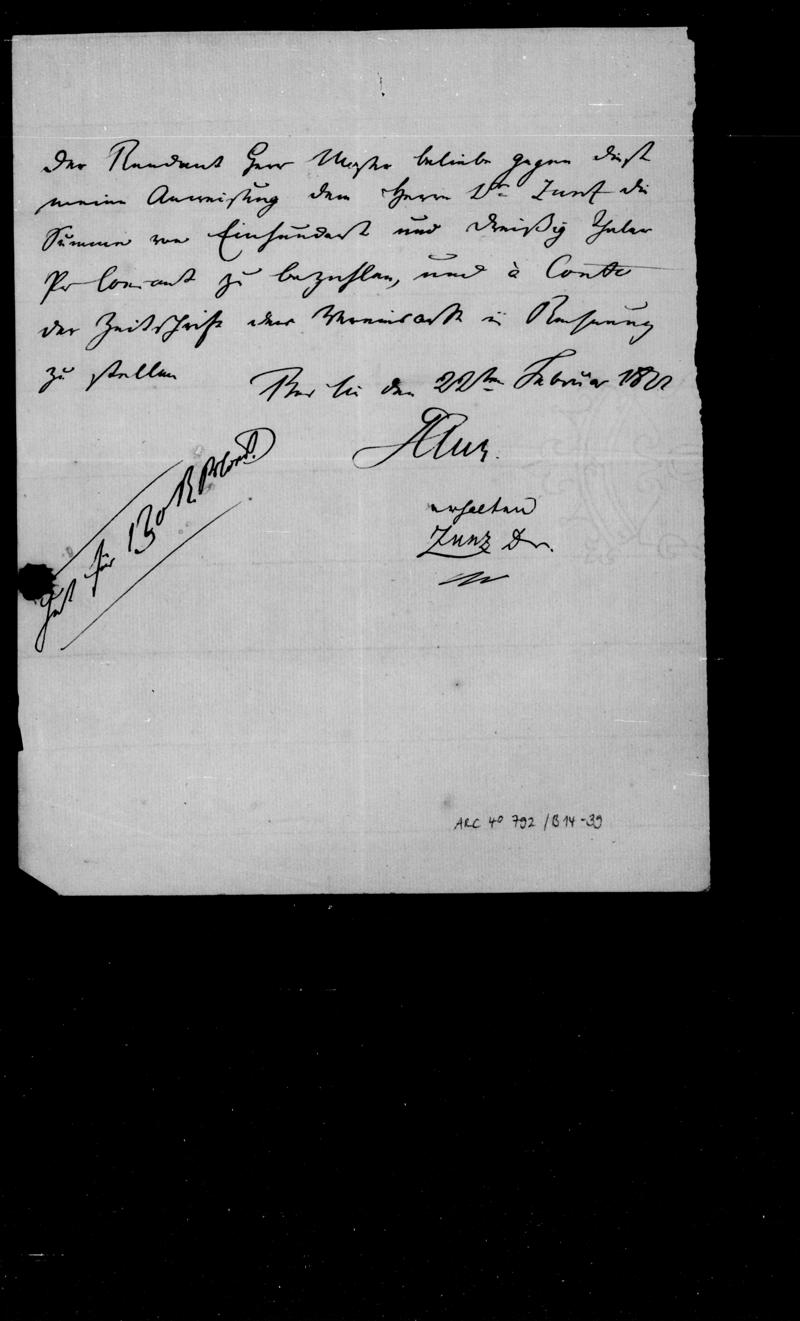 Der Rendant Herr Moser beliebe gegen diese
meine Anweisung dem Herrn Dr Zunz die
Summe von Einhundert und dreißig Thaler
Pr Courant zu bezahlen, und à Conto
der Zeitschrift der in Rechnung
zu stellen
Berlin den 22ten Februar 1822
erhalten
Zunz Dr.
Gut für 130 R. PrCour.
ARC 4° 792 / B14-39